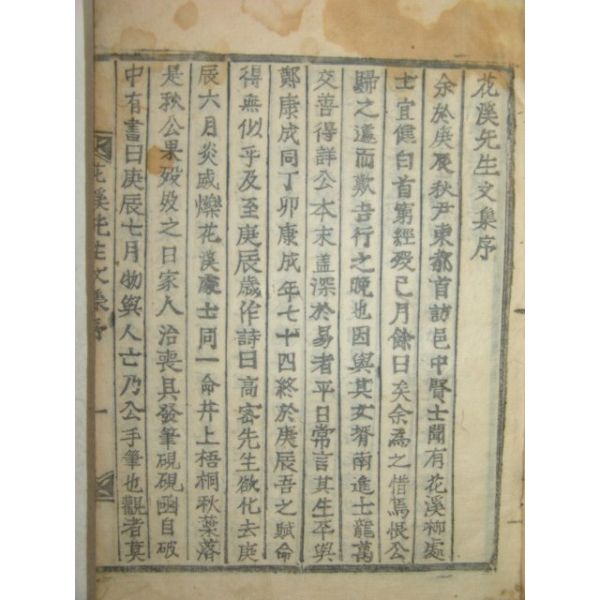 花溪先生文集序
余於庚辰秋尹東都首訪邑中賢士聞有花溪柳處
士宜健白首窮經歿已月餘日矣余爲之惜焉恨公
歸之遽而歎吾行之晩也因與其女壻南進士龍萬
交善得詳公本末盖深於易者平日常言其生卒與
鄭康成同丁卯康成年七十四終於庚辰吾之賦命
得無似乎及至庚辰歲作詩曰高密先生欲化去庚
辰六月炎威爍花溪處士同一命井上梧桐秋葉落
是秋公果歿歿之日家人治喪具發筆硯硯凾自破
中有書曰庚辰七月物與人亡乃公手筆也觀者莫
花溪先生文集序 一